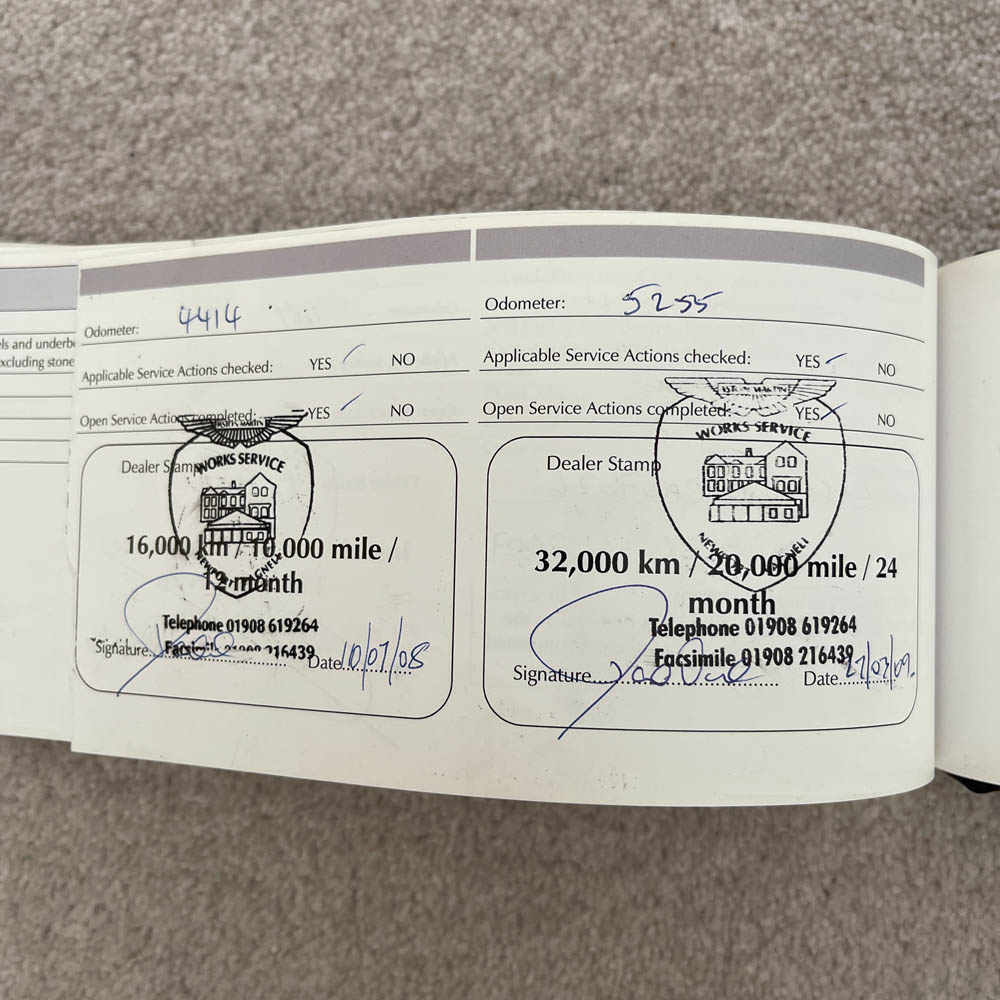 els and underb
excluding stone
Odometer: 4414
Applicable Service Actions checked: YES NO
Open Service Actions completed: YES NO
Dealer Stamp
WORKS SERVICE
16,000 km / 10,000 mile /
12 month
Telephone 01908 619264
Signature Date 10/07/08
Odometer: 5255
Applicable Service Actions checked: YES NO
Open Service Actions completed: YES NO
Dealer Stamp
WORKS SERVICE
32,000 km / 20,000 mile / 24
month
Telephone 01908 619264
Facsimile 01908 216439
Signature Date